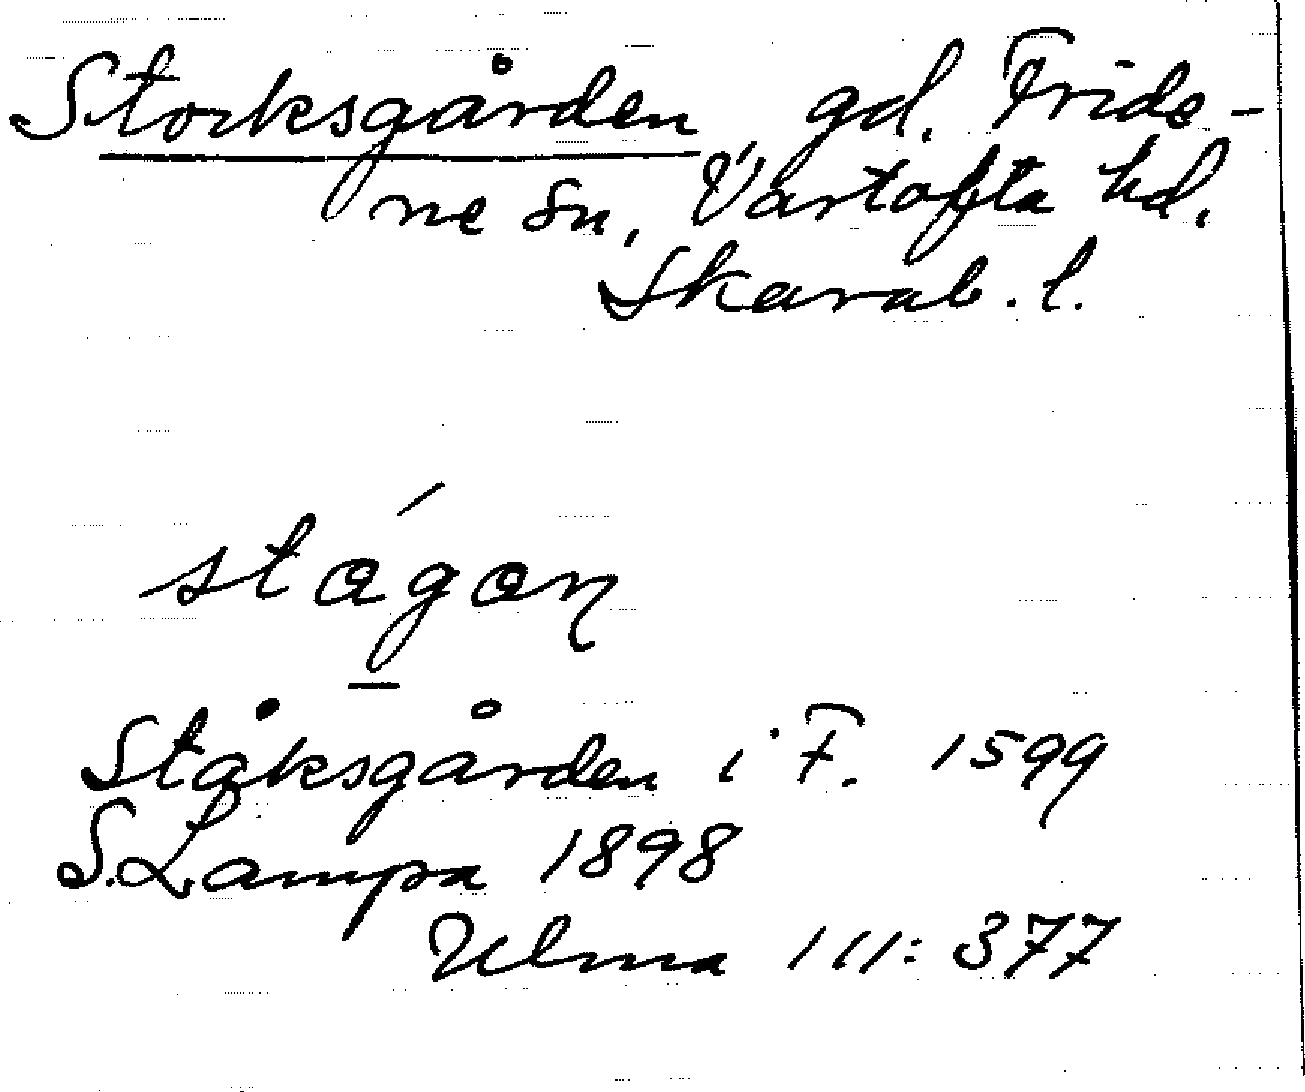 Storksgården gd. Frids-
ne sn, Vartofta hd.
Skarab. l.
stágan
Ståksgården i F. 1599
S. Lampa 1898
Ulma 111: 377